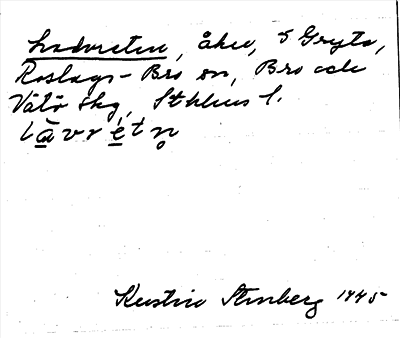 Ladvreten, åker, S Gryta,
Roslags-Bro sn, Bro och
Vätö skg, Sthlms l.
Kerstin Stenberg 1945